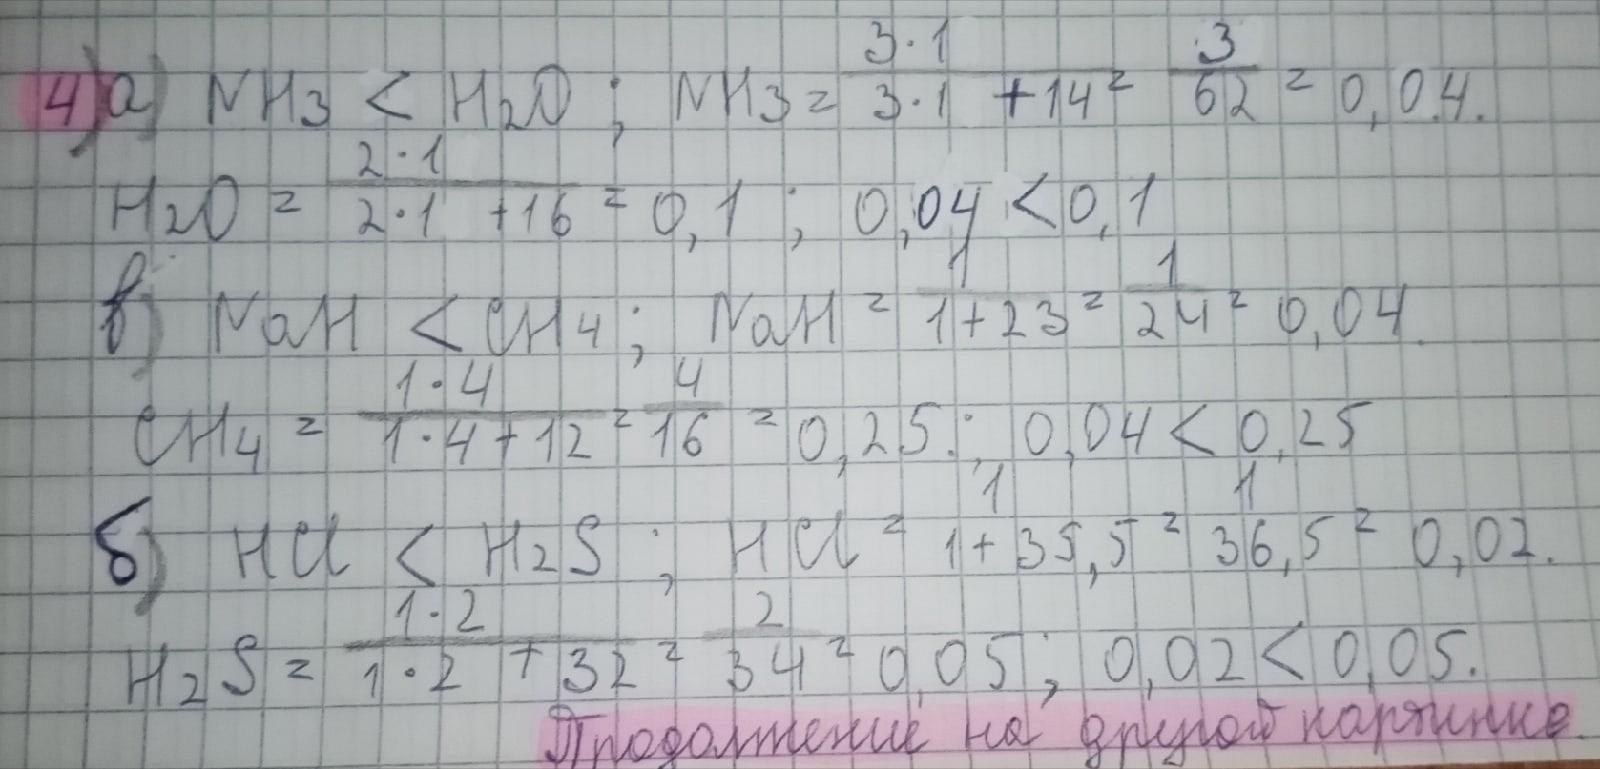 4) а) NH3 < H2O ; NH3 = 3·1 / 3·1 + 14 = 3 / 62 = 0,04.
H2O = 2·1 / 2·1 + 16 = 0,1 ; 0,04 < 0,1
в) NaH < CH4 ; NaH = 1 / 1+23 = 1 / 24 = 0,04.
CH4 = 1·4 / 1·4+12 = 4 / 16 = 0,25. ; 0,04 < 0,25
б) HCl < H2S ; HCl = 1 / 1+35,5 = 1 / 36,5 = 0,02.
H2S = 1·2 / 1·2 + 32 = 2 / 34 = 0,05 ; 0,02 < 0,05.
Продолжение на другой картинке.